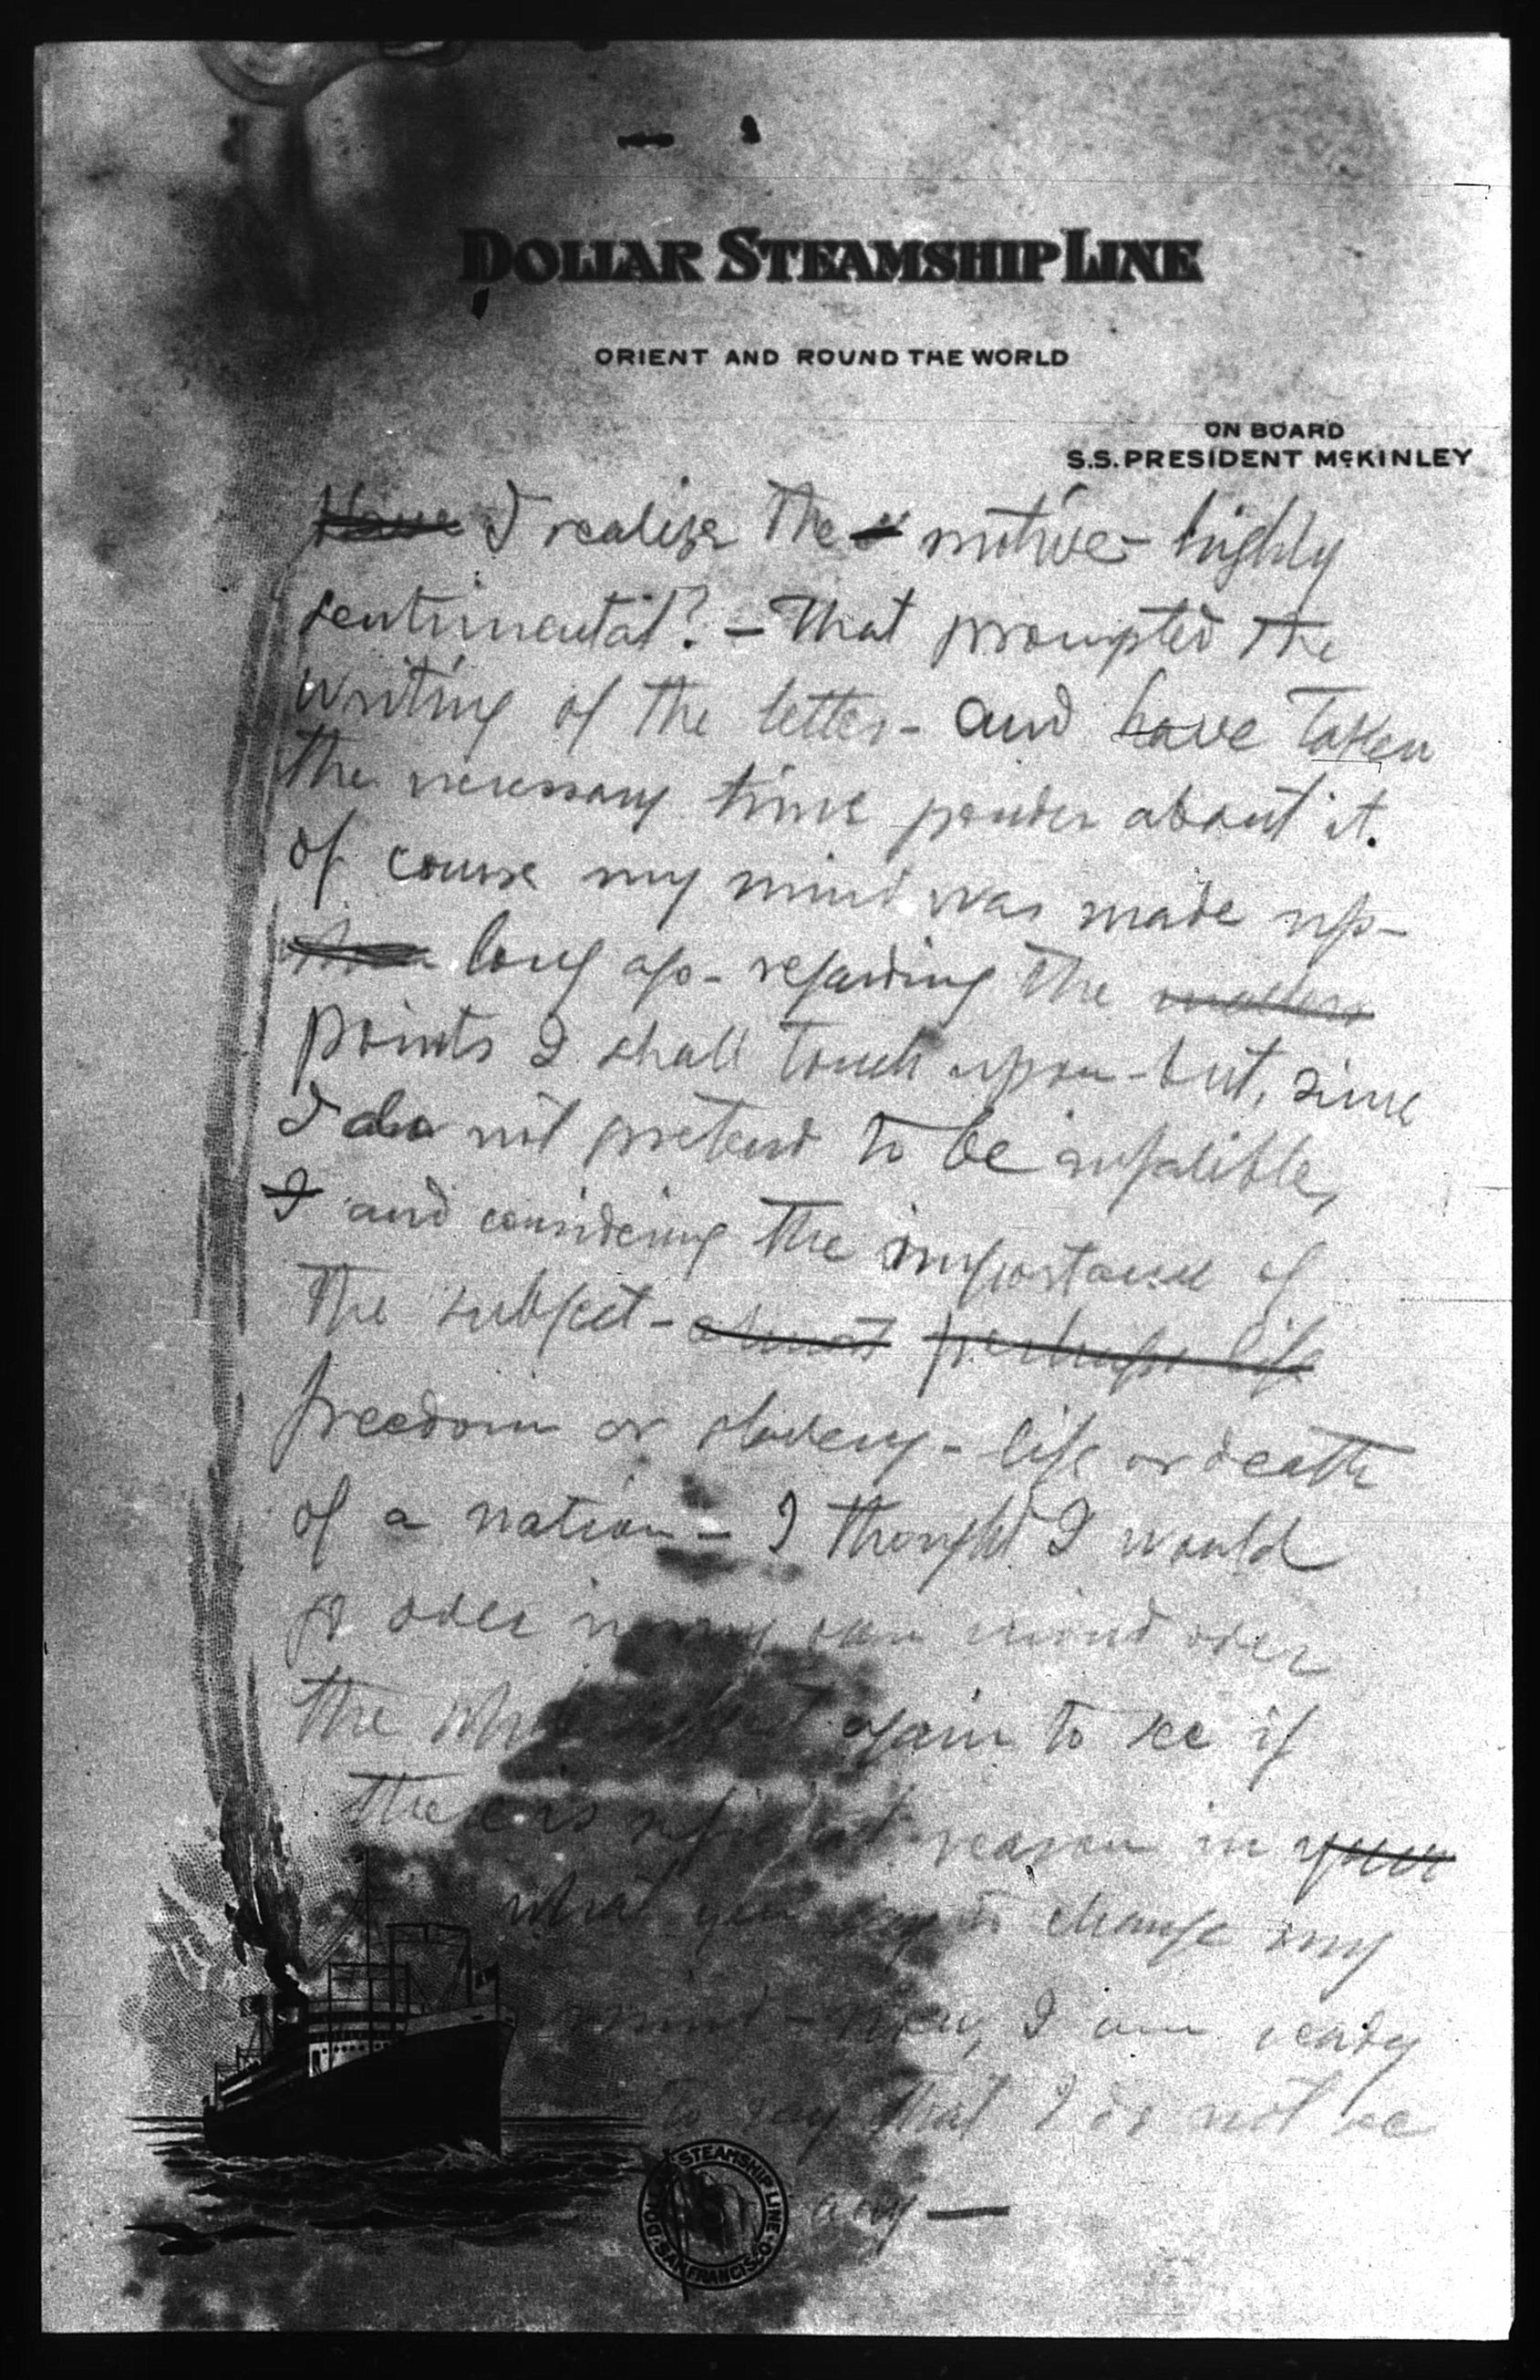 DOLLAR STEAMSHIP LINE
ORIENT AND ROUND THE WORLD
ON BOARD
S.S. PRESIDENT McKINLEY
I realize the motive - highly
sentimental? - that prompted the
writing of the letter - and have taken
the necessary time ponder about it.
Of course my mind was made up -
long ago - regarding the matters
points I shall touch upon - but, since
I do not pretend to be infalible,
I and considering the importance of
the subject - almost perhaps life
freedom or slavery - life or death
of a nation - I thought I would
go over in my own mind over
the whole subject again to see if
there is sufficient reason in your
what you say to change my
mind - now, I am ready
to say that I do not see
any —
DOLLAR STEAMSHIP LINE · SAN FRANCISCO ·